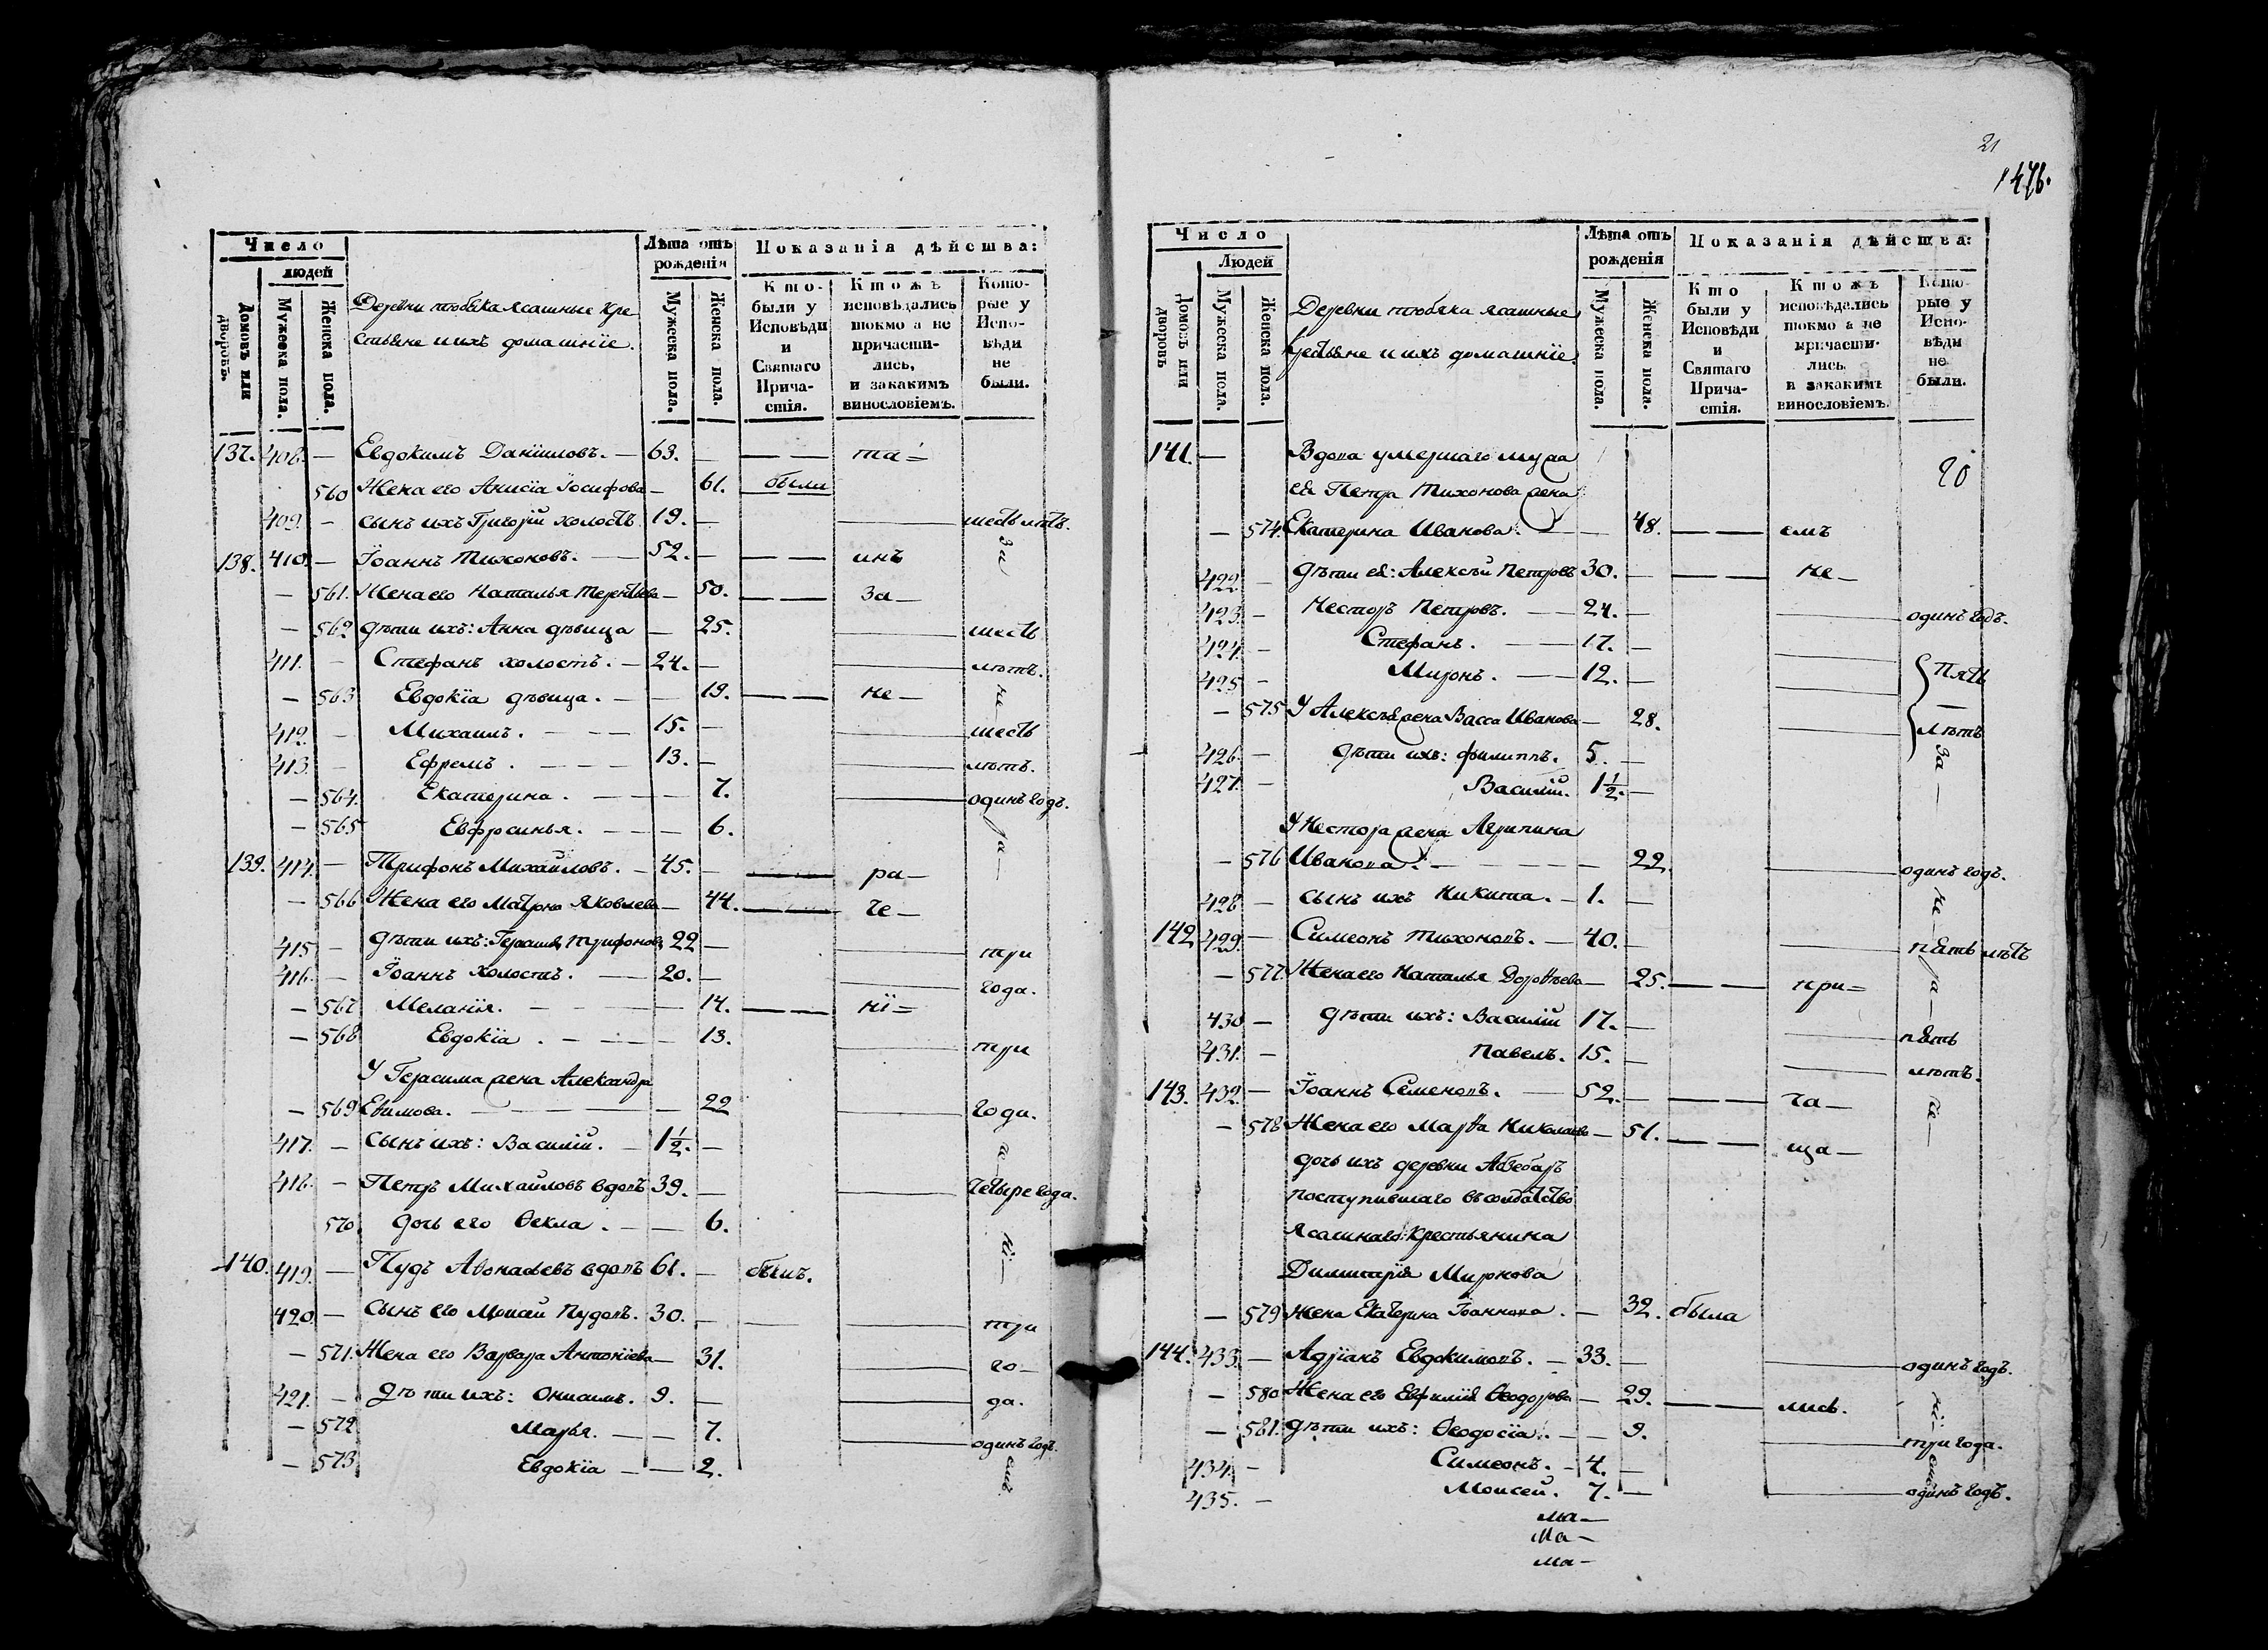 Число
людей
Домовъ или дворовъ.
Мужеска пола.
Женска пола.
Деревни тюбяка ясашные кре
стьяне и ихъ домашніе.
Лѣта отъ рожденія
Мужеска пола.
Женска пола.
Показанія дѣйства:
Кто были у Исповѣди и Святаго Причастія.
Ктожъ исповѣдались токмо а не причастились, и закакимъ винословіемъ.
Которые у Исповѣди не были.
137. 408. — Евдокимъ Даніиловъ. — 63. — — — та=
560 Жена его Анисіа Іосифова — 61. были
409. — сынъ ихъ Григорій холостъ 19. — шесть лѣтъ.
138. 410. — Іоаннъ Тихоновъ. — 52. — — — инъ За
— 561. Жена его Наталья Терентьева — 50. — — За —
— 562 дѣти ихъ: Анна дѣвица — 25. шесть
411. — Стефанъ холостъ. — 24. — лѣтъ.
— 563 Евдокіа дѣвица. — — 19. — — не — не
412. — Михаилъ. — — — 15. — шесть
413. — Ефремъ. — — — 13. — лѣтъ.
— 564. Екатерина. — — — 7. одинъ годъ.
— 565 Евфросинья. — — — 6. ра —
139. 414. — Трифонъ Михаиловъ. — 45. — — — ра —
— 566 Жена его Матрона Яковлева — 44. — — че —
415 — дѣти ихъ: Герасимъ Трифоновъ 22 — три
416. — Іоаннъ холостъ. — 20. — года.
— 567 Меланія. — — — 14. — — ні=
— 568 Евдокіа. — — — 13. три
У Герасима жена Александра
— 569 Евѳимова. — — — 22 года.
417. — сынъ ихъ: Василій. — 1½. — а
418. — Петръ Михаиловъ вдовъ 39. — четыре года.
570. дочь его Ѳекла. — — 6. ні —
140. 419. — Пудъ Аѳонасьевъ вдовъ 61. — былъ.
420. — сынъ его Моисей Пудовъ. 30. — три
— 571. Жена его Варвара Антоніева — 31. го —
421. — дѣти ихъ: Онисимъ. 9. — да.
— 572 Марья. — — 7. одинъ годъ.
— 573 Евдокіа — — 2. емъ
21
1476.
Число
Людей
Домовъ или дворовъ
Мужеска пола.
Женска пола.
Деревни тюбяка ясашные
крестьяне и ихъ домашніе.
Лѣта отъ рожденія
Мужеска пола.
Женска пола.
Показанія дѣйства:
Кто были у Исповѣди и Святаго Причастія.
Ктожъ исповѣдались токмо а не причастились и закакимъ винословіемъ.
Которые у Исповѣди не были.
20
141. — Вдова умершаго мужа
ея Петра Тихонова жена
— 574. Екатерина Иванова. — — 48. — — емъ
422. — дѣти ея: Алексѣй Петровъ 30. — — — не —
423. — Несторъ Петровъ. — 24. — одинъ годъ.
424. — Стефанъ. — 17. —
425 — Миронъ. — 12. — пять
— 575 У Алексѣя жена Васса Иванова — 28. лѣтъ
426. — дѣти ихъ: Филиппъ. 5. — За —
427. — Василій. 1½. —
У Нестора жена Агрипина
— 576 Иванова. — — — 22. одинъ годъ.
428. — сынъ ихъ Никита. — 1. — не —
142 429. — Симеонъ Тихоновъ. — 40. — пять лѣтъ
— 577. Жена его Наталья Дороѳеева — 25. — — при= ра —
430 — дѣти ихъ: Василій 17. — пять
431. — Павелъ. 15. — лѣтъ.
143. 432. — Іоаннъ Семеновъ. — 52. — — — ча — че —
— 578 Жена его Марѳа Николаева — 51. — — ща —
дочь ихъ деревни
поступившаго въ солдатство
Ясашнаго Крестьянина
Димитрія Миронова
— 579 жена Екатерина Іоаннова. — 32. была
144. 433. — Адріанъ Евдокимовъ. — 33. — одинъ годъ.
— 580 Жена его Ѳеодорова — 29. — — лись. ні —
— 581. дѣти ихъ: Ѳеодосіа. — — 9. три года.
434. — Симеонъ. — 4. — емъ
435. — Моисей. 7. — одинъ годъ.
ма —
ма —
ма —